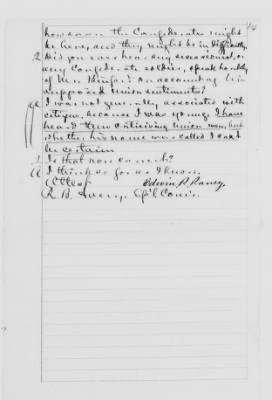 how soon the Confederates might
be here, and they might be in difficulty
Q Did you ever hear any secessionist, or
any Confederate soldier, speak harshly
of Mr on account of his
supposed Union sentiments?
A I was not generally associated with
citizens, because I was young; I have
heard them criticising Union men, but
whether his name was called I cant
be certain
Q Is that now correct?
A I think so far as I know.
Attest Edwin R. Raney,
R. B. Avery, Sp'l Comr.